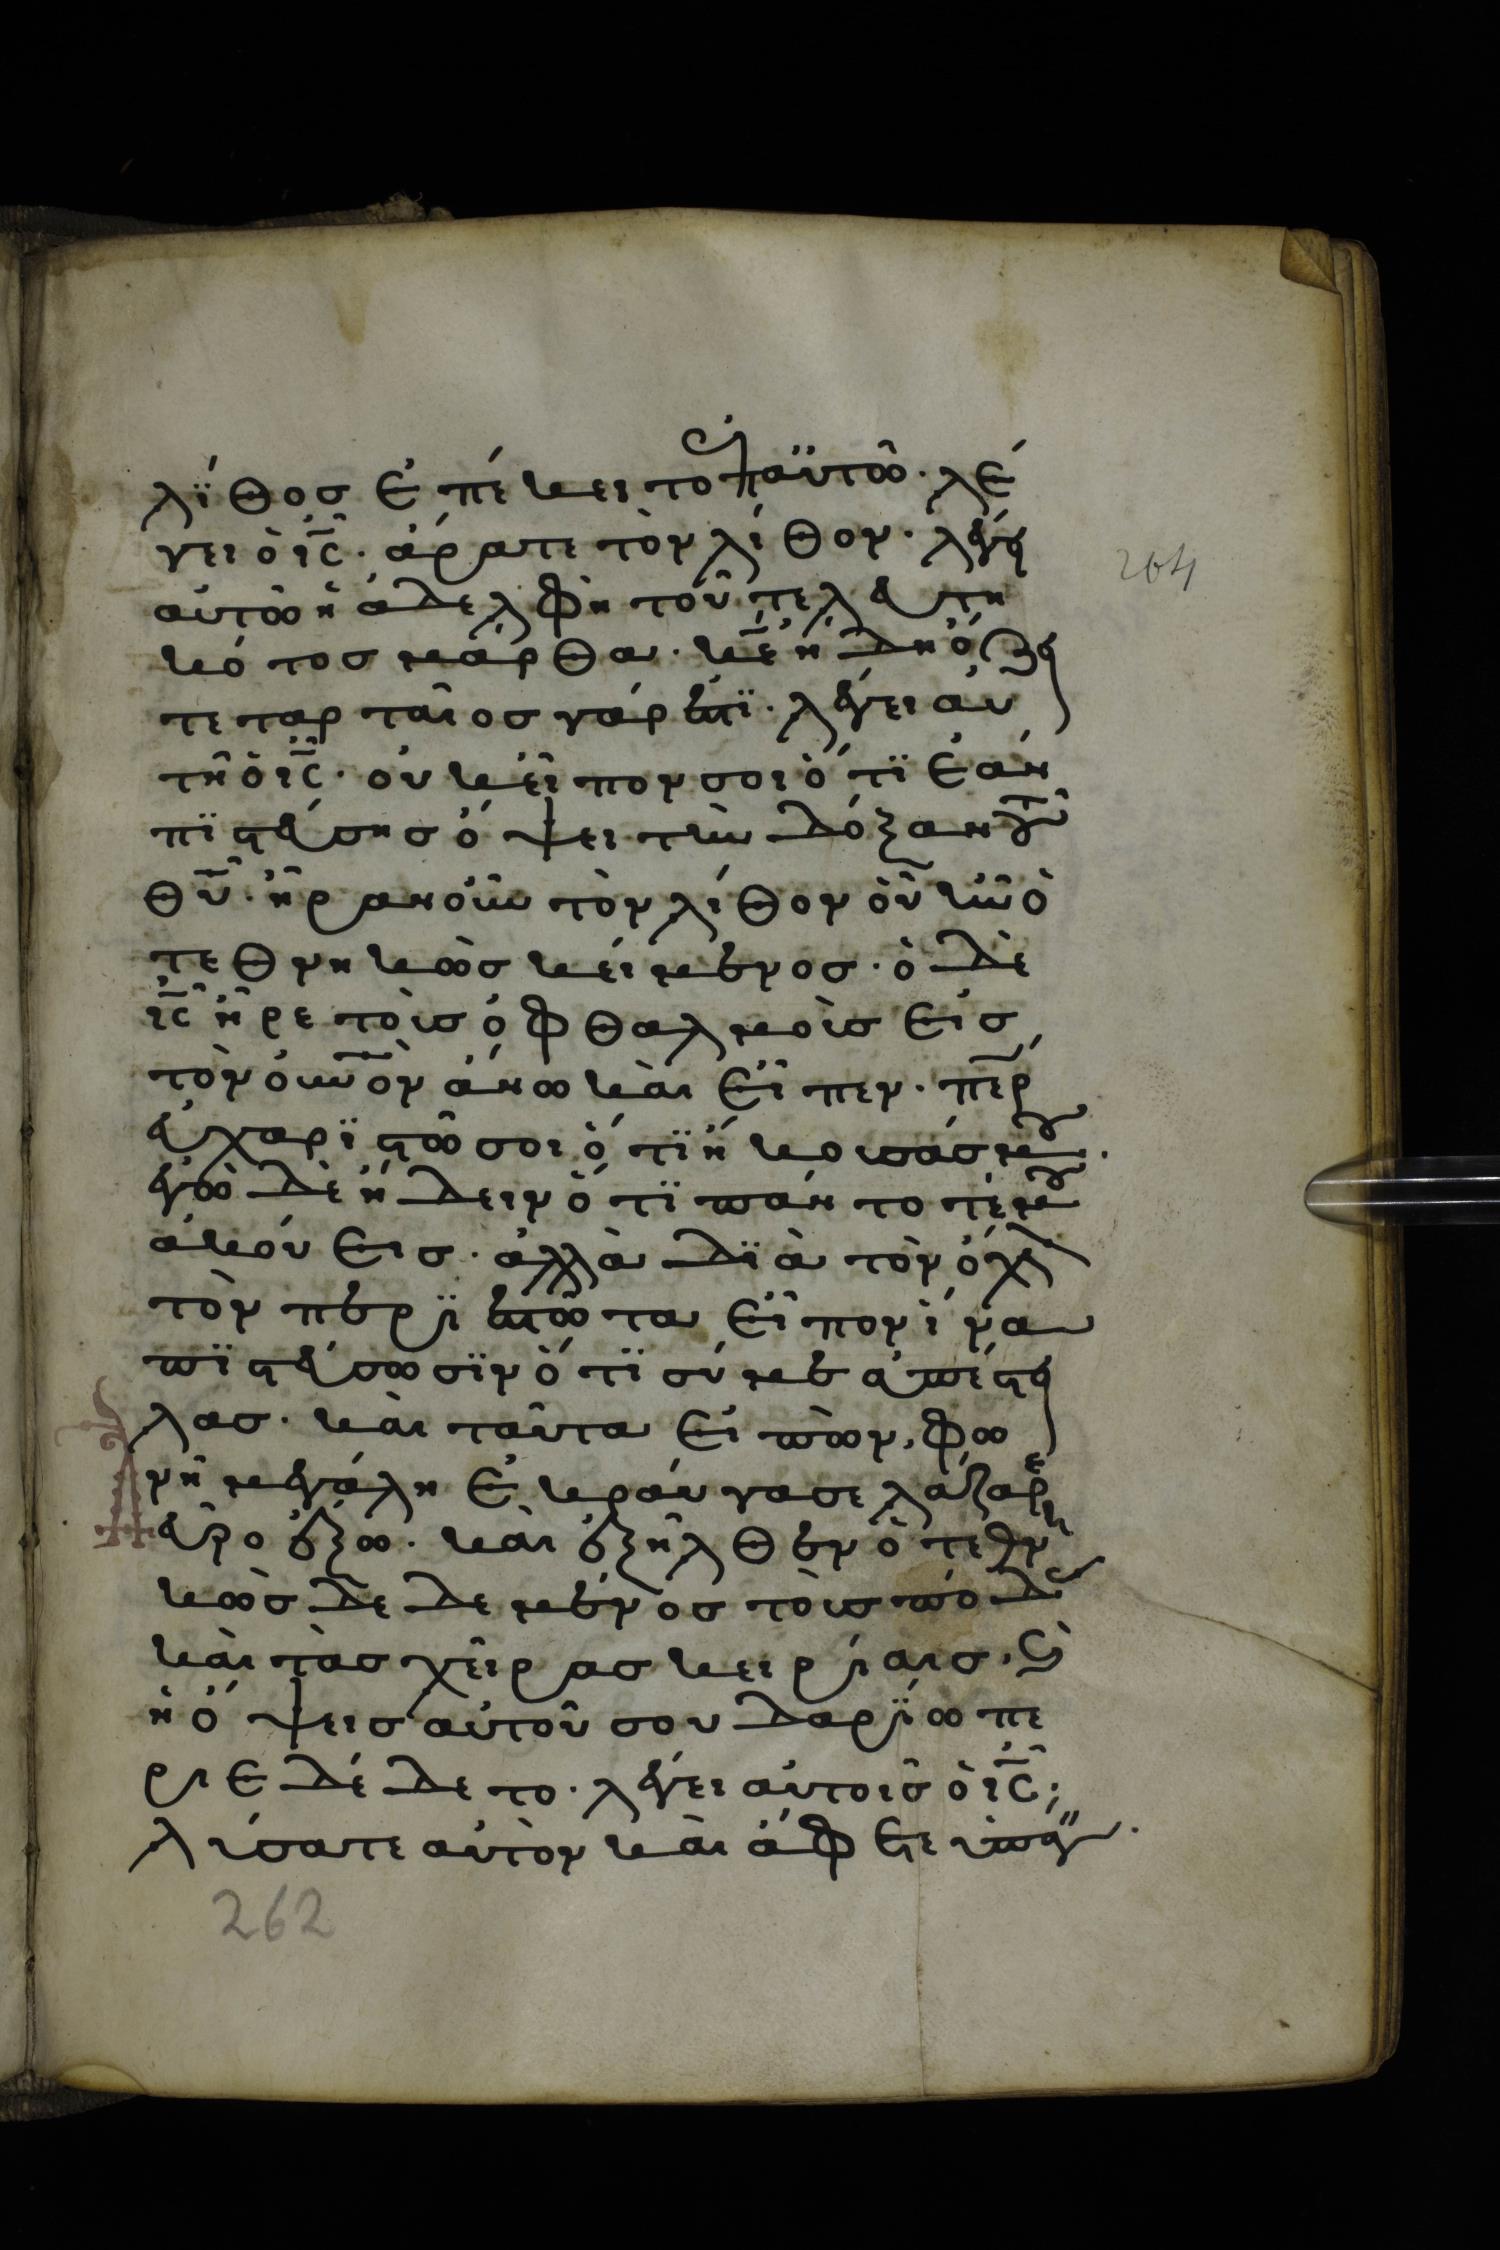 λΐθος ἐπέκειτο ἐπ αὐτῶ· λέ
γει ὁ ις̅· ἄρατε τὸν λίθον· λέγει
αὐτῶ ἡ ἀδελφὴ τοῦ τελευτη
κότος μάρθα· κε̅ ἤδη ὄζει
τεταρταῖος γάρ ἐστϊ· λέγει αὐ
τῆ ὁ ις̅· οὐκ εἶπον σοι ὅτϊ ἐὰν
πϊστεύσης ὄψει τὴν δόξαν τοῦ
θυ̅· ἦραν οὖν τὸν λίθον οὗ ἦν ὁ
τεθνηκὼς κείμενος· ὁ δὲ
ις̅ ἦρε τοὺς ὀφθαλμοὺς εἰς
τὸν οὐνο̅ν ἄνω καὶ εἶπεν· περ̅
εὐχαρϊστῶ σοι ὅτϊ ἤκουσάς μου·
ἐγὼ δὲ ἤδειν ὅτϊ πάντοτέ μου
ἀκούεις· ἀλλὰ δϊὰ τὸν ὄχλον
τὸν περϊεστῶτα εἶπον ἵνα
πϊστεύσωσϊν ὅτϊ σύ με ἀπέστει
λας· καὶ ταῦτα εἰπὼν, φω
νῆ μεγάλη ἐκραύγασε λάζαρε
δεῦρο ἔξω· καὶ ἐξῆλθεν ὁ τεθνη
κὼς δεδεμένος τοὺς πόδας
καὶ τὰς χεῖρας κειρίαις, καὶ
ἡ ὄψεις αὐτοῦ σουδαρϊω πε
ριεδέδετο· λέγει αὐτοῖς ὁ ις̅;
λύσατε αὐτὸν καὶ ἄφετε ὑπάγειν·
264
262